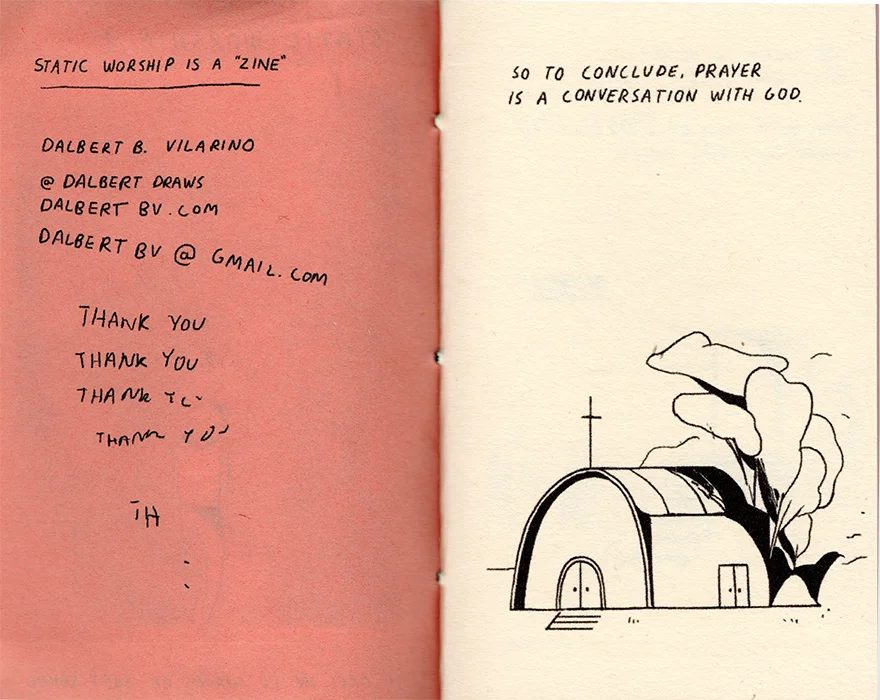 STATIC WORSHIP IS A "ZINE"
DALBERT B. VILARINO
@ DALBERT DRAWS
DALBERT BV.COM
DALBERT BV @ GMAIL.COM
THANK YOU
THANK YOU
THANK
THANK YOU
TH
SO TO CONCLUDE, PRAYER
IS A CONVERSATION WITH GOD.